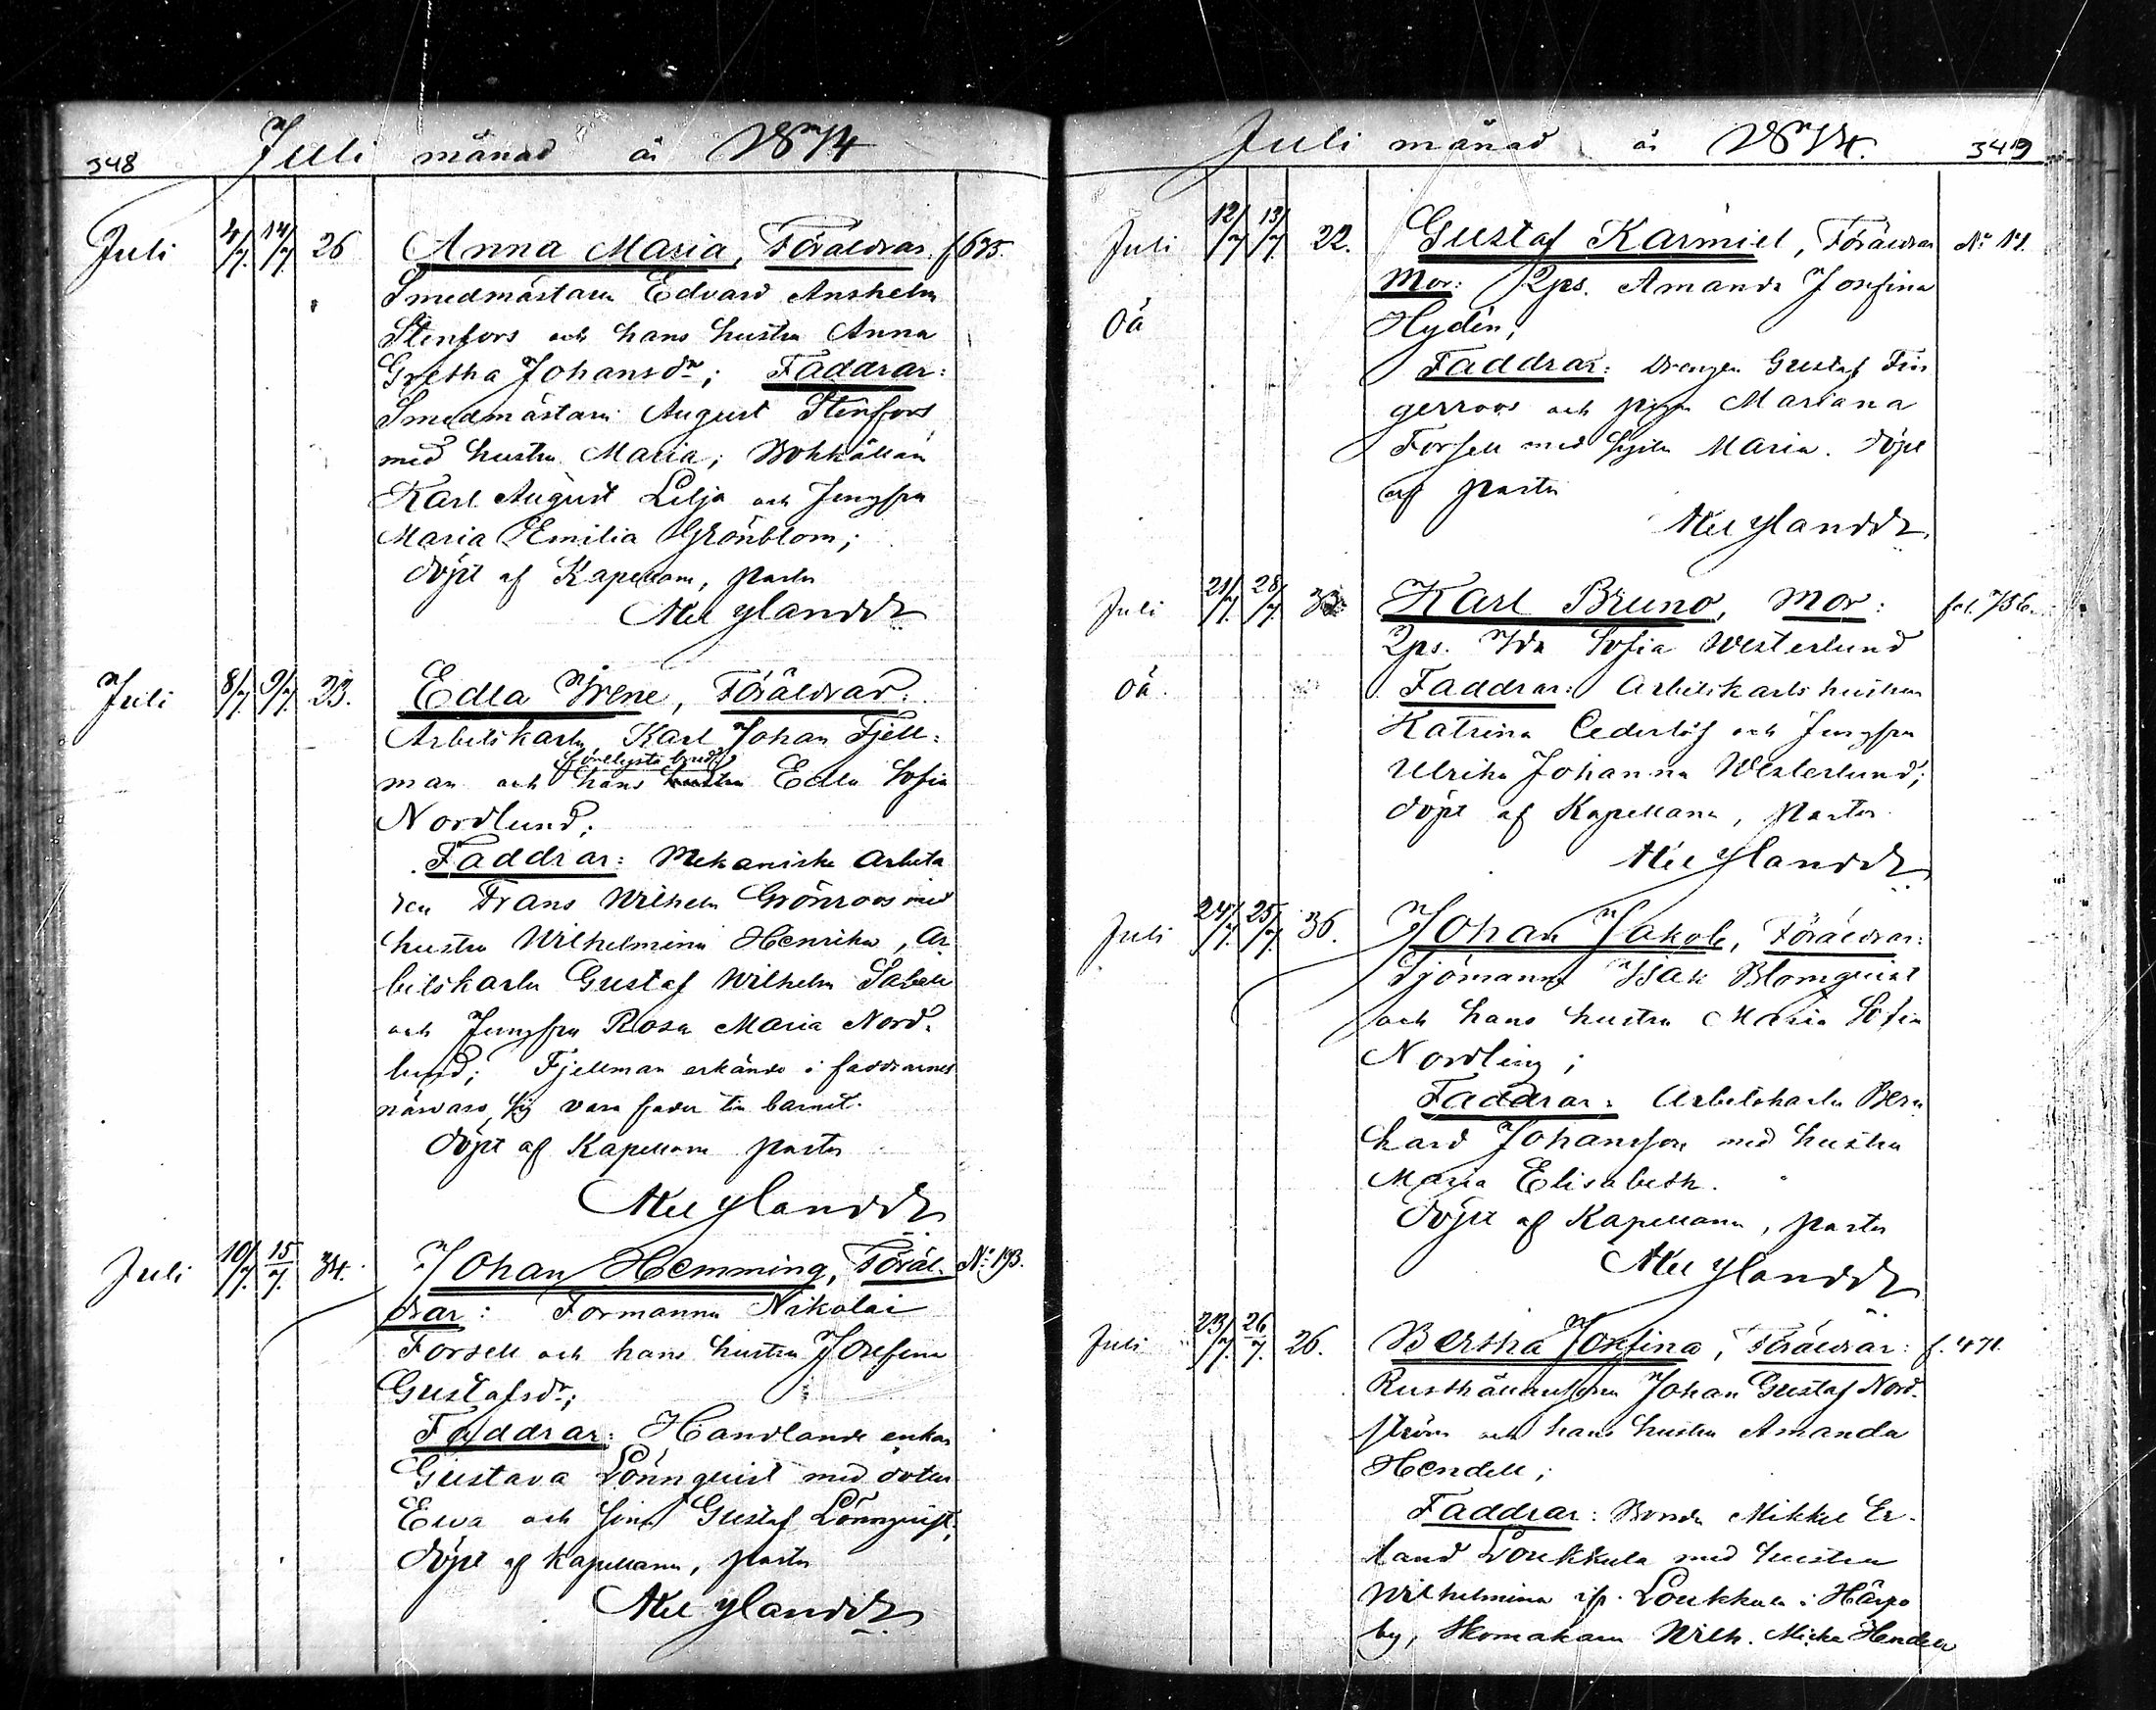 348 Juli månad år 1874
Juli 4/7. 14/7. 26 Anna Maria, Föräldrar: f 675.
Smedmästaren Edvard Anshelm
Stenfors och hans hustru Anna
Gretha Johansdr; Faddrar:
Smedmästaren August Stenfors
med hustru Maria; Bokhållaren
Karl August Lilja och Jungfru
Maria Emilia Grönblom;
döpt af Kapellanen, pastor
Ylander
Juli 8/7. 9/7. 23. Edla Irene, Föräldrar:
Arbetskarlen Karl Johan Fjell-
förelofvade brud
man och hans hustru Edla Sofia
Nordlund;
Faddrar: Mekaniske arbeta
ren Frans Wilhelm Grönroos med
hustru Wilhelmina Henrika, Ar
betskarlen Gustaf Wilhelm Sabell
och Jungfru Rosa Maria Nord-
lund; Fjellman erkände i faddrarnes
närvaro sig vara fader till barnet.
döpt af Kapellanen pastor
Ylander
Juli 10/7. 15/7. 34. Johan Hemming, Föräl- No 193.
drar: Formannen Nikolai
Forsell och hans hustru Josefina
Gustafsdr;
Faddrar: Handlande enkan
Gustava Lönnquist med dotter
Eva och son Gustaf Lönnquist;
döpt af kapellanen, pastor
Ylander
Juli månad år 1874. 349
Juli 12/7 13/7. 22. Gustaf Karmiel, Föräldrar No 17.
Mor: Qps. Amanda Josefina
oä Hydén;
Faddrar: Drengen Gustaf Fin
gerroos och pigan Mariana
Forsell med syster Maria. döpt
af pastor
Ylander
Juli 21/7. 28/7. Karl Bruno, Mor: fol. 756.
Qps. Ida Sofia Westerlund
oä. Faddrar: Arbetskarls hustrun
Katrina Cederlöf och Jungfru
Ulrika Johanna Westerlund;
döpt af Kapellanen, Pastor
Ylander
Juli 24/7. 25/7. 36. Johan Jakob, Föräldrar:
Sjömannen Isak Blomquist
och hans hustru Maria Sofia
Nordling;
Faddrar: Arbetskarlen Bern
hard Johansson med hustru
Maria Elisabeth.
döpt af Kapellanen, pastor
Ylander
Juli 23/7. 26/7. 26. Bertha Josefina, Föräldrar: f. 471.
Rusthållaresonen Johan Gustaf Nord-
ström och hans hustru Amanda
Hendell;
Faddrar: Bonden Mikkel Er-
land Loukkula med hustru
Wilhelmina ifr. Loukkula i Härpo
by, Skomakaren Wilh. Mich. Hendell